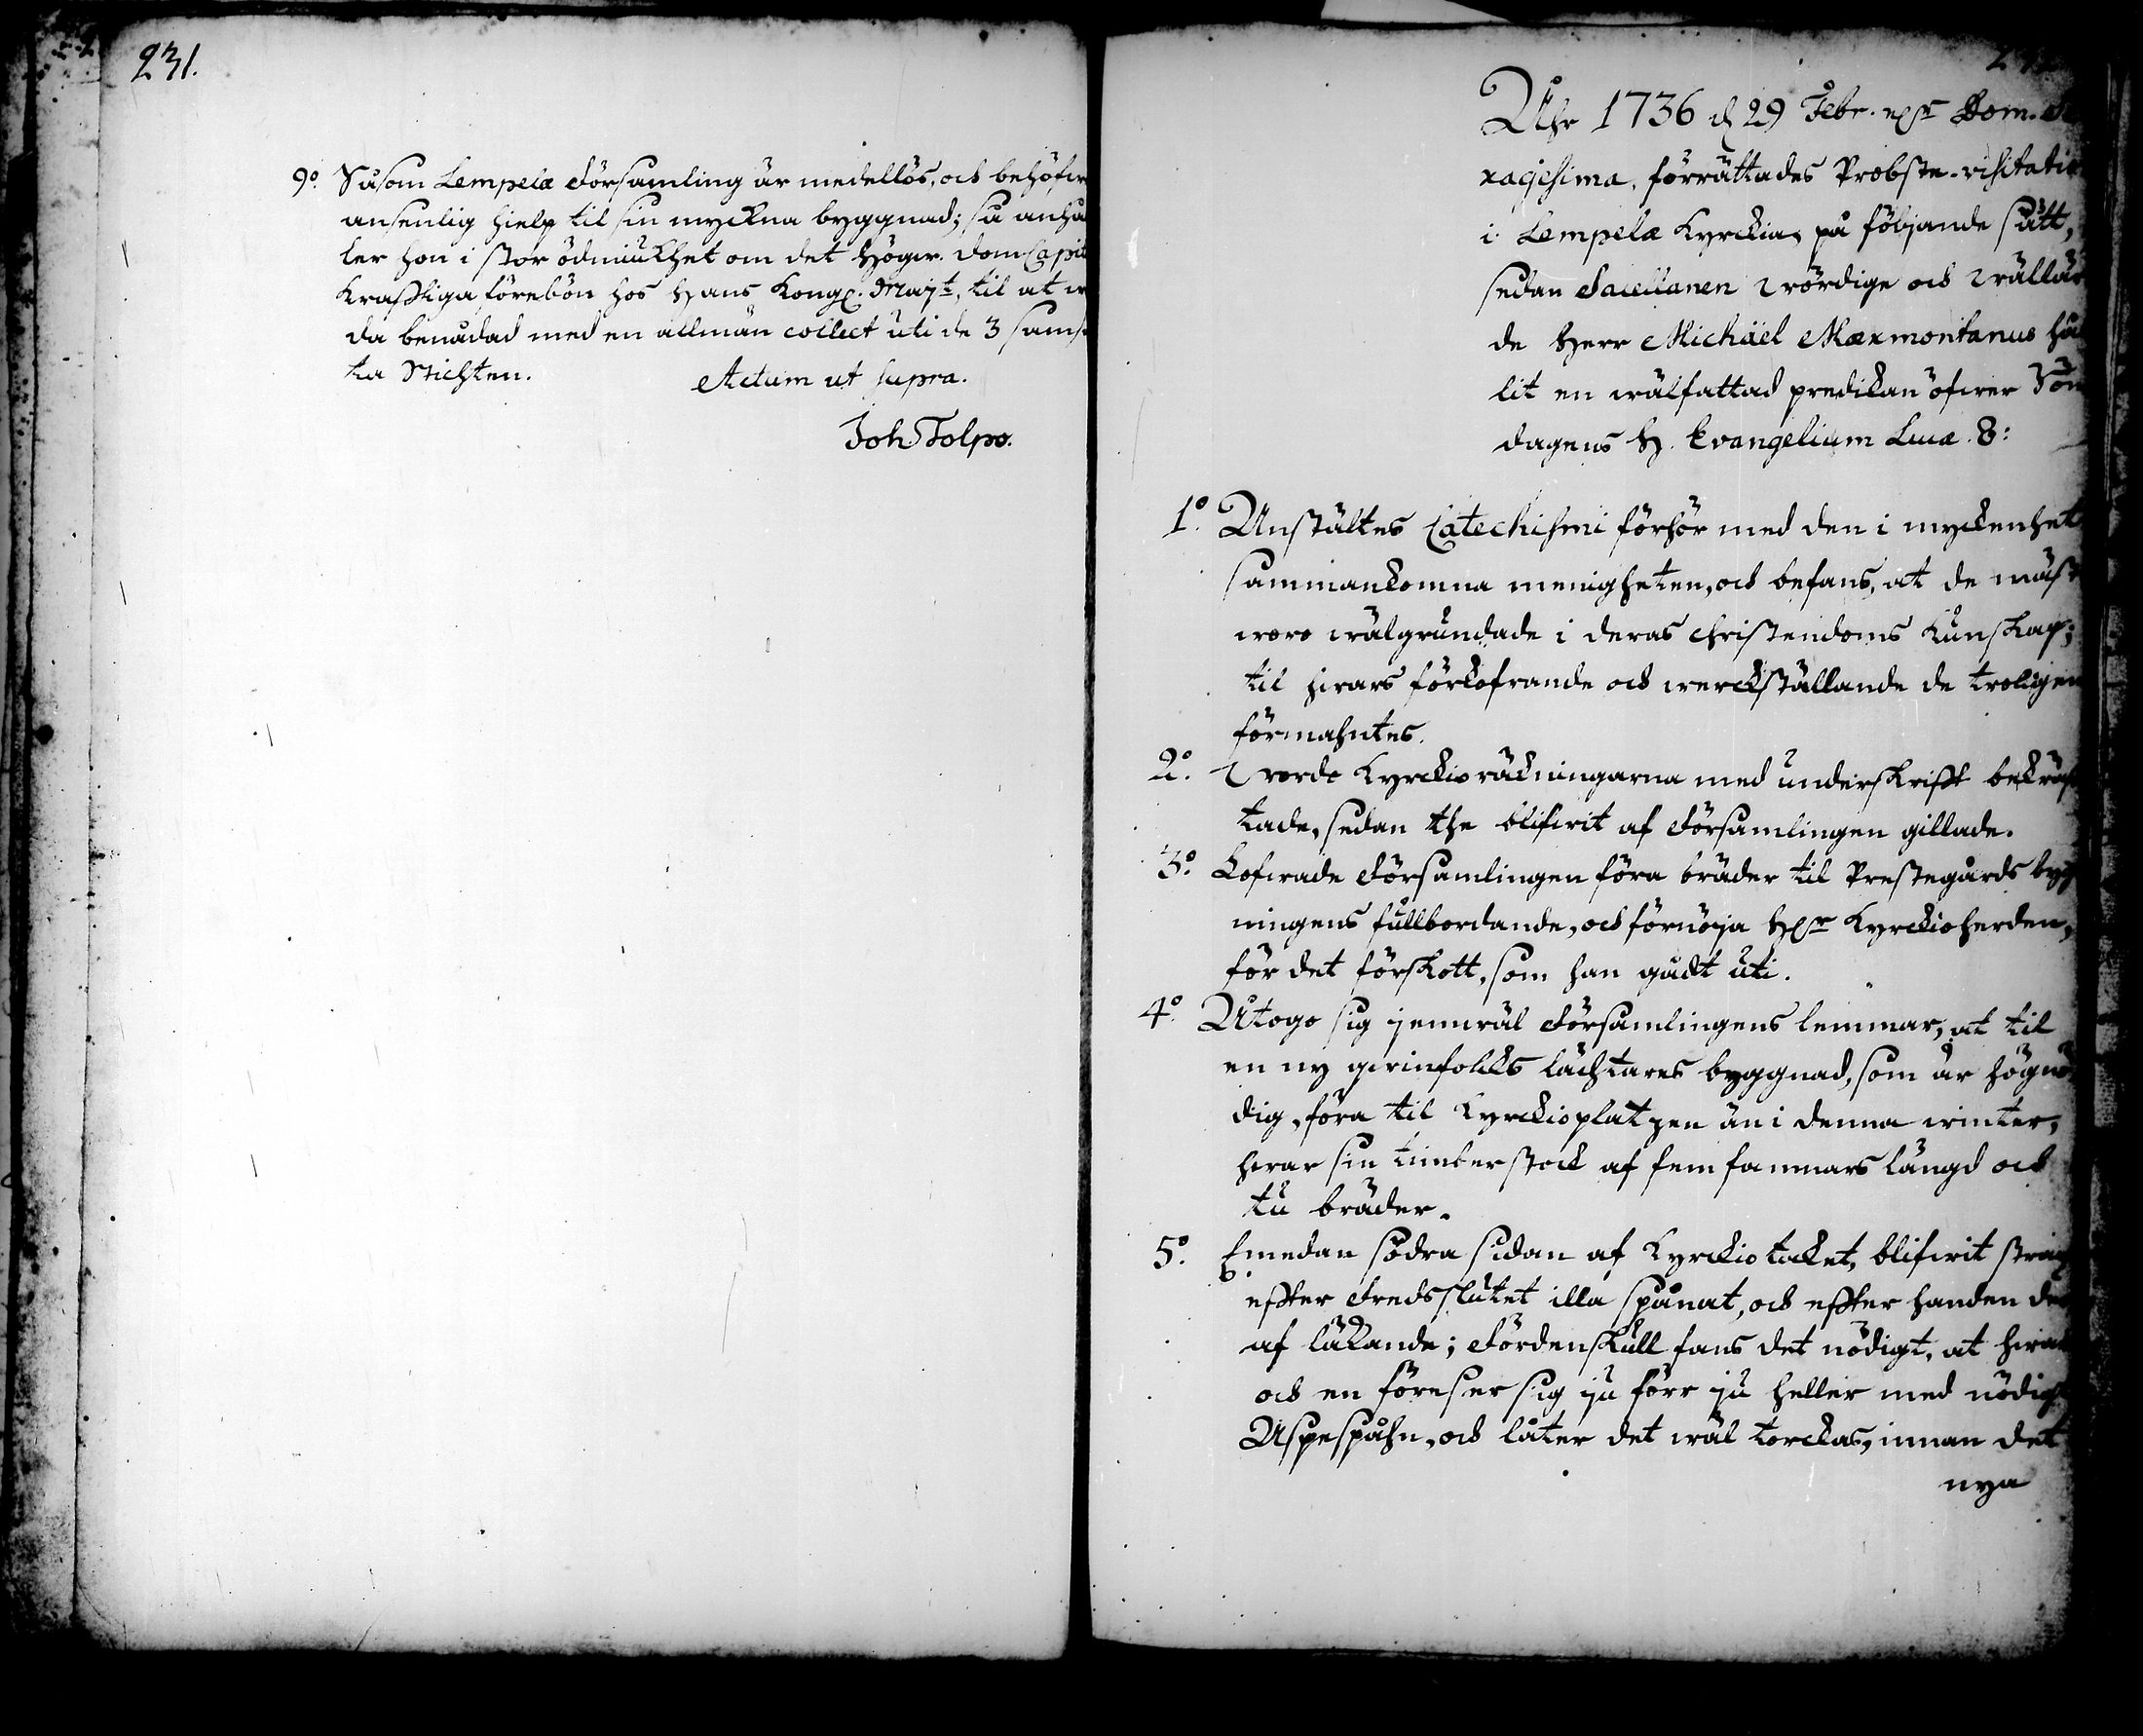 231.
9o. Såsom Lempelä Församling är medellös, och behöfwer
ansenlig hielp til sin myckna byggnad; så anhå
ler hon i stor ödmiukhet om det Högw. DomCapit
krafftiga förebön hos Hans Kongl. Majt, til at w
da benådad med en allmän collect uti de 3 sams
ta Stichten.
Actum ut supra.
Joh. Tolpo.
Åhr 1736 d. 29 Febr. Dom. Se
xagesima, förrättades Probste-visitation
i Lempelä Kyrckia, på följande sätt,
sedan Sacellanen Wördige och Wällär
de Herr Michäel Mæxmontanus hål
lit en wälfattad predikan öfwer Sön
dagens H. Evangelium Lucæ. 8:
1o. Anstältes Catechismi förhör med den i myckenhet
sammankomna menigheten, och befans, at de mäst
woro wälgrundade i deras christendoms kunskap;
til hwars förkofrande och werckställande de troligen
förmahntes.
2o. Wordo Kyrckioräkningarna med underskrifft bekräf
tade, sedan the blifwit af Församlingen gillade.
3o. Lofwade Församlingen föra bräder til Prestegårds byg
ningens fullbordande, och förnöja Hr Kyrckioherden,
för det förskott, som han gådt uti.
4o. Åtogo sig jemwäl Församlingens lemmar, at til
en ny qwinfolcks läcktares byggnad, som är högnö
dig, föra til Kyrckioplatzen än i denna winter,
hwar sin timberstock af fem famnars längd och
tu bräder.
5o. Emedan södra sidan af Kyrckiotaket, blifwit strax
effter Fredsslutet illa spånat, och effter handen der
af läkande; Fördenskull fans det nödigt, at hwar
och en föreser sig ju förr ju heller med nödigt
Aspespåhn, och låter det wäl torckas, innan det
nya